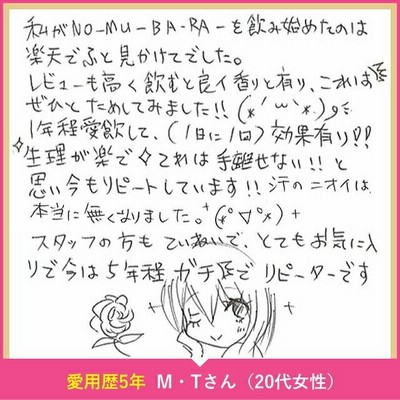 私がNO-MU-BA-RA-を飲み始めたのは
楽天でふと見かけてでした。
レビューも高く飲むと良イ香りと有り、これは
ぜひとためしてみました!! (*˙︶˙*)
1年程愛飲して、(1日に1回)効果有り!!
生理が楽で✧これは手離せない!!と
思い今もリピートしています!! 汗のニオイは
本当に無くなりました。+(*°▽°*)+
スタッフの方もていねいで、とてもお気に入
りで今は5年程ガチでリピーターです
愛用歴5年 M・Tさん(20代女性)